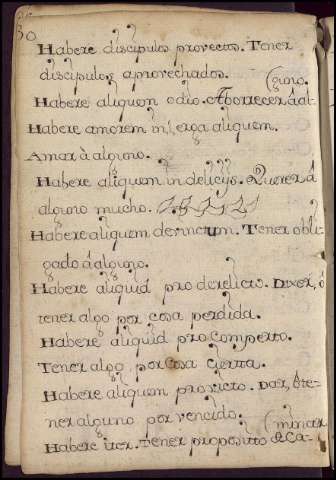 30
Habere discipulos provectos. Tener
discipulos aprovechados.
Habere aliquem odio. Aborrecer á al-
(guno.
Habere amorem in, l, erga aliquem.
Amar à alguno.
Habere aliquem in delicijs. Querer á
alguno mucho.
Habere aliquem devinctum. Tener obli-
gado á alguno.
Habere aliquid pro derelicto. Dexar, ó
tener algo por cosa perdida.
Habere aliquid pro comperto.
Tener algo por cosa cierta.
Habere aliquem pro victo. Dar, ó te-
ner alguno por vencido.
Habere iter. Tener proposito de ca-
(minar